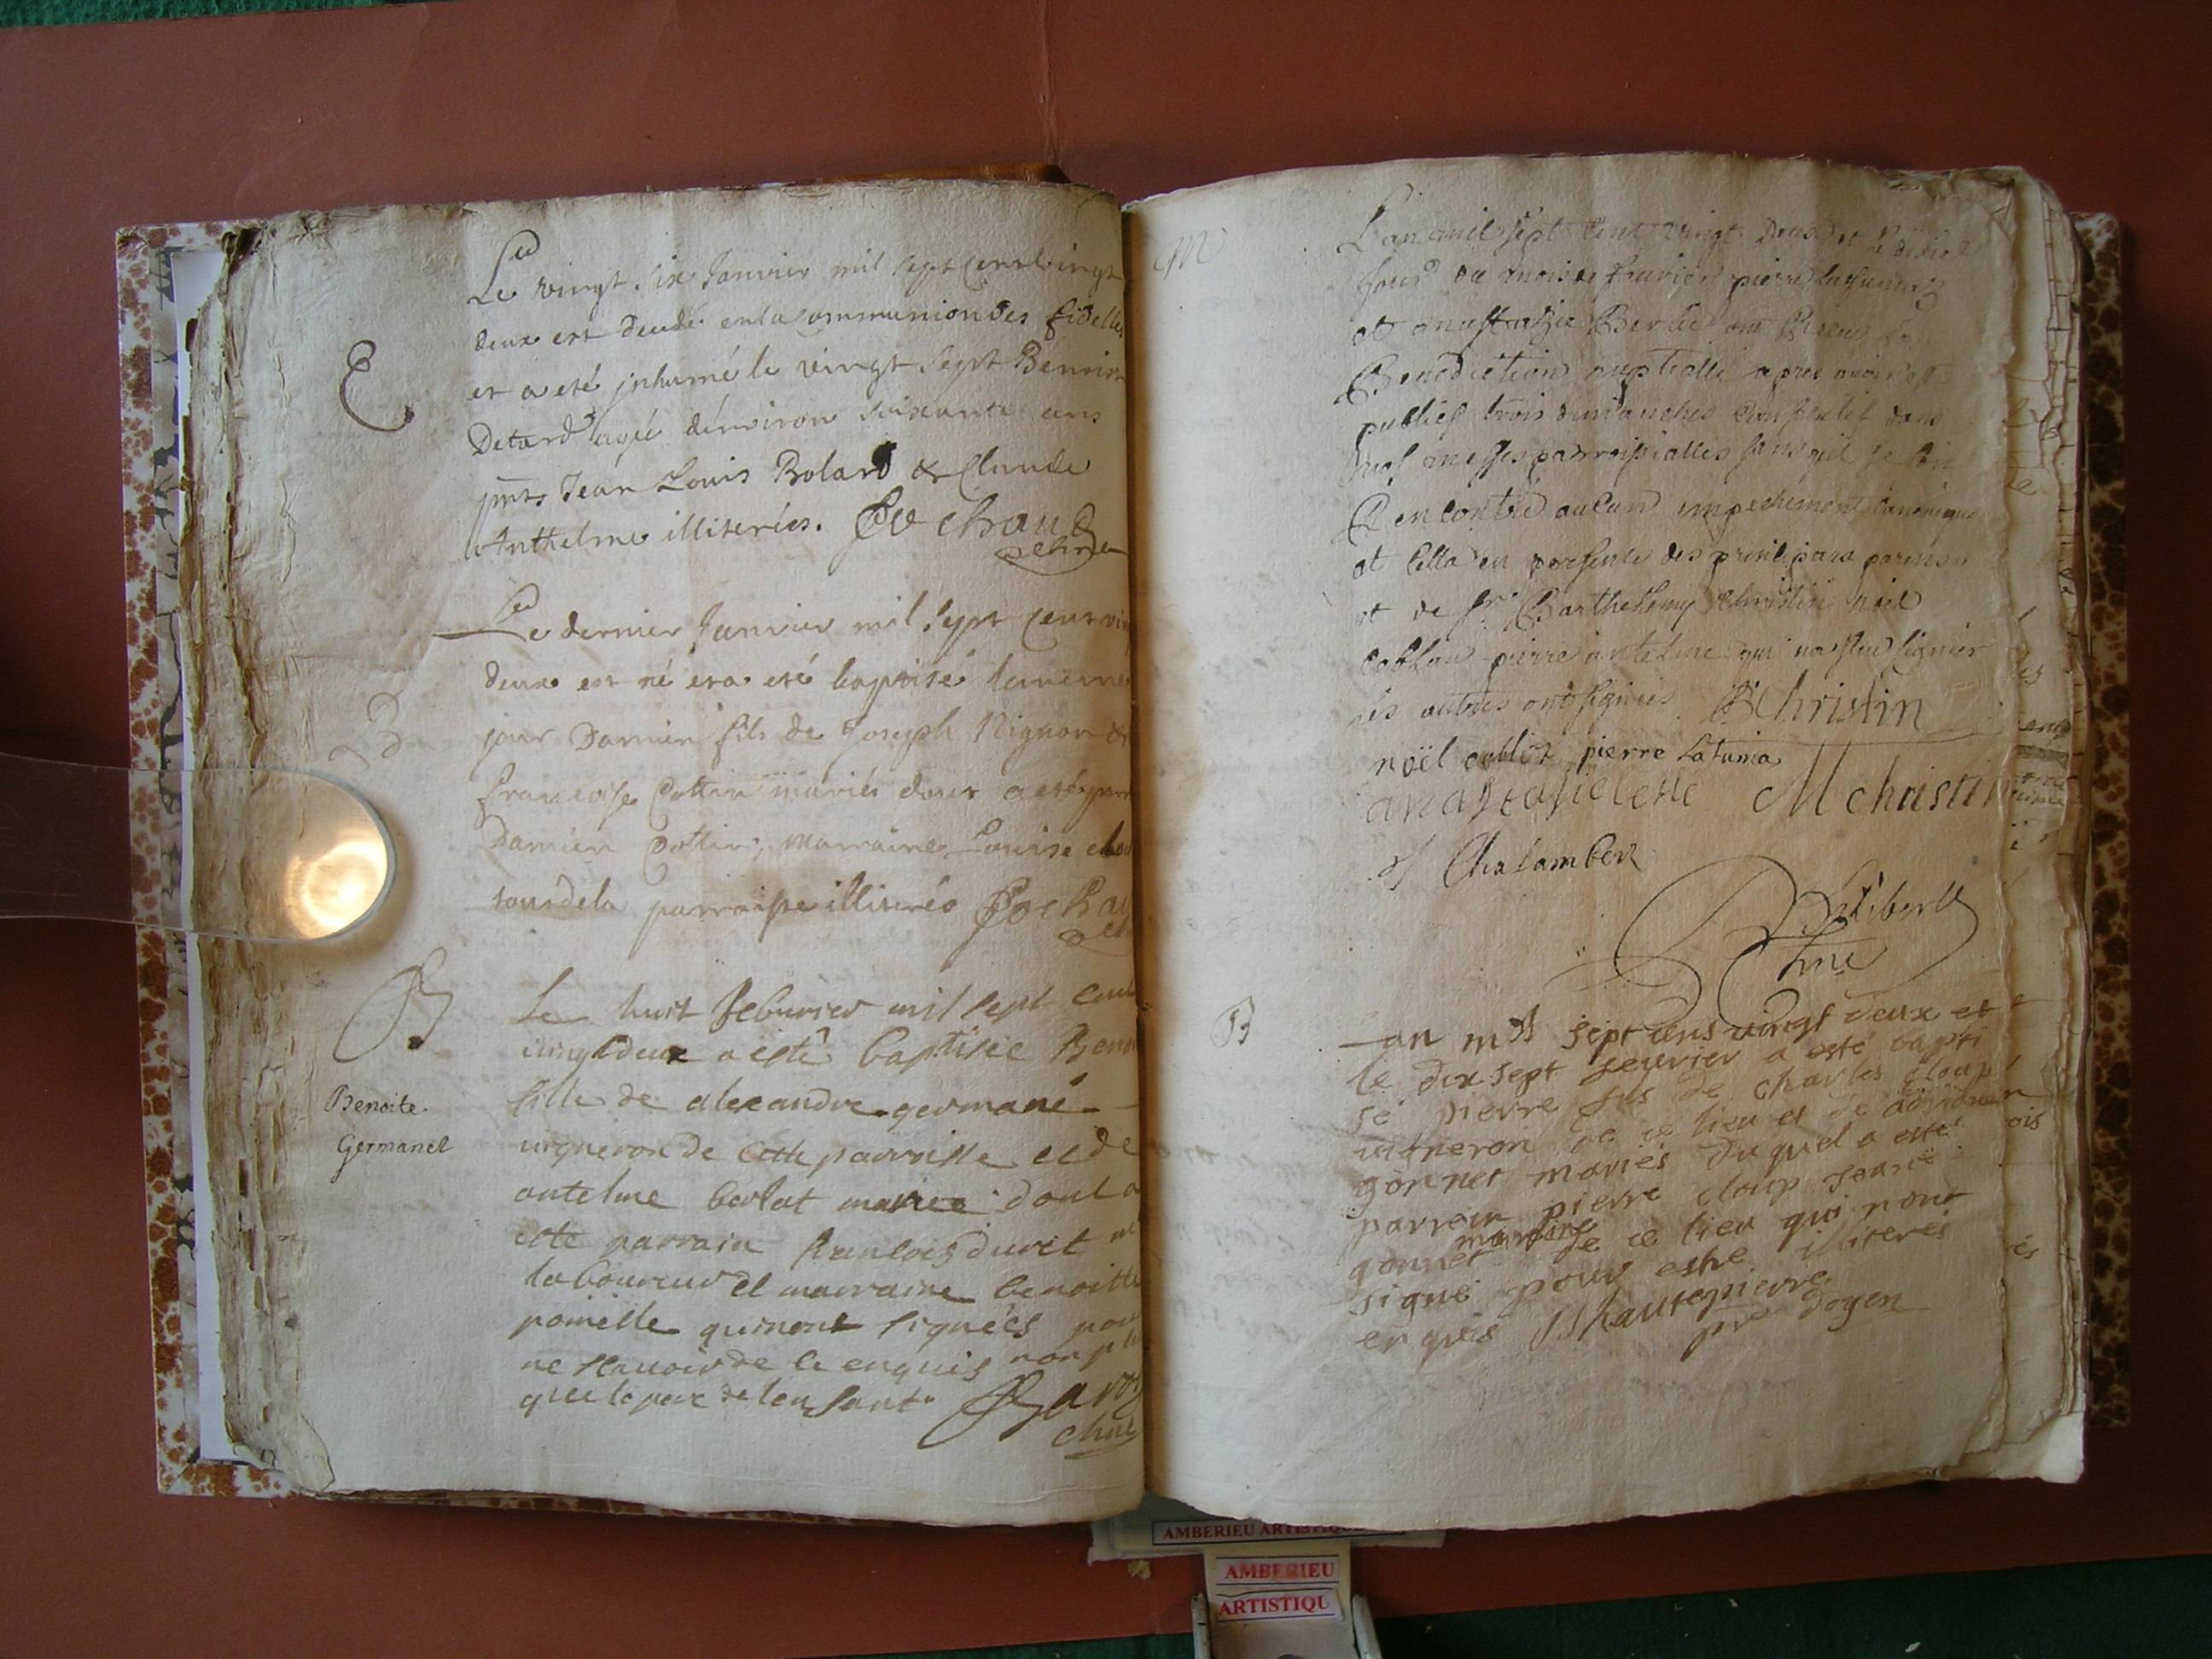 E
Le vingt six Janvier mil sept cent vingt
deux est decedé en la communion des fidelles
et a eté jnhumé le vingt sept Benoist
Detard agé d'environ soixante ans
pnts Jean Louis Bolard & Claude
Anthelme illiterées. Cochaud
B
Le dernier Janvier mil sept cent
deux est né et a eté baptisé le meme
jour Damien fils de Joseph Nignon &
francoise Cottin mariés dont a eté
Damien Cottin, marraine Louise
tous de la parroisse illiterés
B
Le huit feburier mil sept cent
vingt deux a esté baptisée
Benoite
Germanet
fille de alexandre germané
vigneron de cette parroisse et de
antelme barlat mariee dont a
este parrain francois duret
laboureur et marraine benoitte
pomelle qui nont signées
ne scauoir de ce enquis non
que le pere de lenfant
M
L'an mil sept cent vingt deux et le
Jour du mois de feurier pierre
et anastazie ont Receu la
Benediction nuptialle apres auoir esté
publiés trois dimanches dans
nos messes parroissialles sans quil se soit
Rencontré aucun empechement canonique
et cella en presence des principaux parens
et de sr. Barthelemy Christin noël
pierre antelme qui na sceu signier
les autres ont signiés B Christin
noël pierre Latuma
M christin
Chalamber
B
an mil sept cens vingt deux et
le dix sept feurier a esté bapti
sé pierre fils de charles cloup
vigneron de ce lieu et de
gonnet mariés duquel a esté
parrein pierre cloup jeane
gonnet marreine de ce lieu qui nont
signé pour estre illiteres
enquis hautepierre
pre doyen
AMBERIEU ARTISTIQUE
AMBERIEU
ARTISTIQU